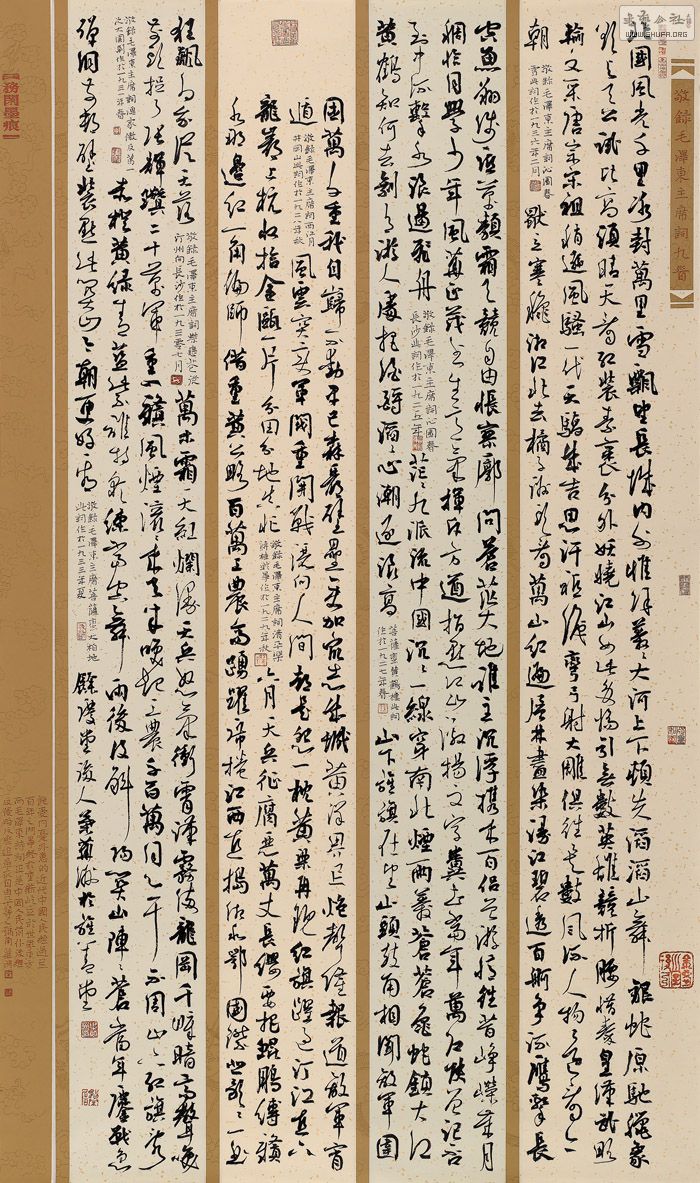 敬錄毛澤東主席詞九首
北國風光千里冰封萬里雪飄望長城內外惟餘莽莽大河上下頓失滔滔山舞銀蛇原馳蠟象
欲與天公試比高須晴天看紅裝素裹分外妖嬈江山如此多嬌引無數英雄競折腰惜秦皇漢武略
輸文采唐宗宋祖稍遜風騷一代天驕成吉思汗祗識彎弓射大雕俱往矣數風流人物還看今
朝
敬錄毛澤東主席詞沁園春
雪此詞作於一九三六年二月
獨立寒秋湘江北去橘子洲頭看萬山紅遍層林盡染漫江碧透百舸爭流鷹擊長
空魚翔淺底萬類霜天競自由悵寥廓問蒼茫大地誰主沉浮攜來百侶曾遊憶往昔崢嶸歲月
稠恰同學少年風華正茂書生意氣揮斥方遒指點江山激揚文字糞土當年萬戶侯曾記否
到中流擊水浪遏飛舟
敬錄毛澤東主席詞沁園春
長沙此詞作於一九二五年
茫茫九派流中國沉沉一線穿南北煙雨莽蒼蒼龜蛇鎖大江
黃鶴知何去剩有遊人處把酒酹滔滔心潮逐浪高
菩薩蠻黃鶴樓此詞
作於一九二七年春
山下旌旗在望山頭鼓角相聞敵軍圍
困萬千重我自巋然不動早已森嚴壁壘更加眾志成城黃洋界上炮聲隆報道敵軍宵
遁
敬錄毛澤東主席詞西江月
井岡山此詞作於一九二八年秋
風雲突變軍閥重開戰灑向人間都是怨一枕黃粱再現紅旗躍過汀江直下
龍巖上杭收拾金甌一片分田分地真忙
敬錄毛澤東主席詞清平樂
蔣桂戰爭作於一九二九年秋
六月天兵征腐惡萬丈長纓要把鯤鵬縛贛
水那邊紅一角偏師借重黃公略百萬工農齊踴躍席捲江西直搗湘和鄂國際悲歌歌一曲
狂飆為我從天落
敬錄毛澤東主席詞蝶戀花從
汀州向長沙作於一九三零七月
萬木霜天紅爛漫天兵怒氣衝霄漢霧滿龍岡千嶂暗齊聲喚
前頭捉了張輝瓚二十萬軍重入贛風煙滾滾來天半喚起工農千百萬同心幹不周山下紅旗亂
敬錄毛澤東主席詞漁家傲反第
一次大圍剿作於一九三一年春
赤橙黃綠青藍紫誰持彩練當空舞雨後復斜陽關山陣陣蒼當年鏖戰急
彈洞前村壁裝點此關山今朝更好看
敬錄毛澤東主席菩薩蠻大柏地
此詞作於一九三三年夏
務閑墨痕
WWW.SHUFA.ORG